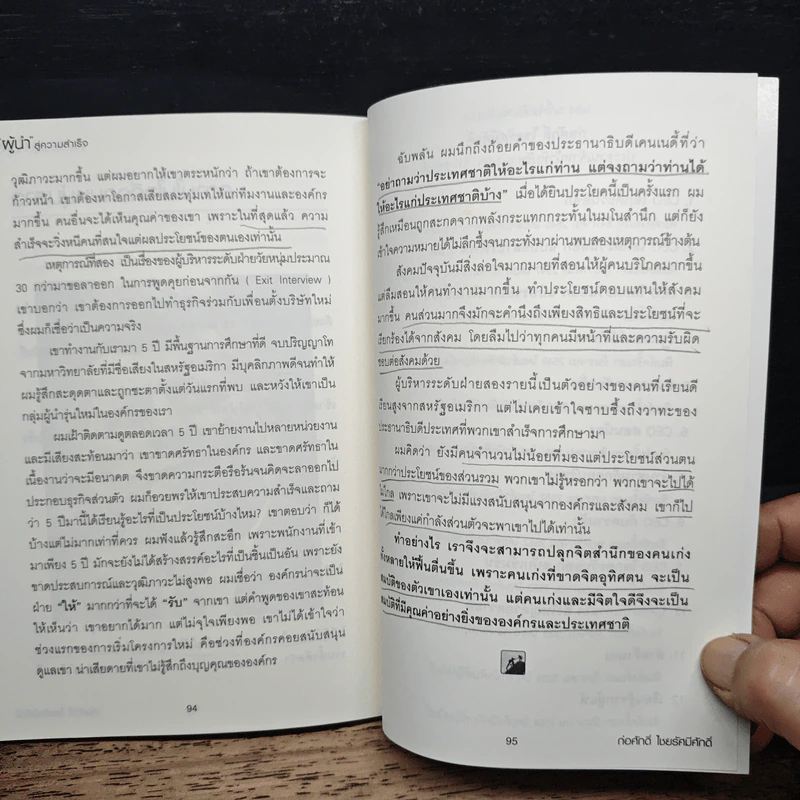 "ผู้นำ" สู่ความสำเร็จ
วุฒิภาวะมากขึ้น แต่ผมอยากให้เขาตระหนักว่า ถ้าเขาต้องการจะ
ก้าวหน้า เขาต้องหาโอกาสเสียสละทุ่มเทให้แก่ทีมงานและองค์กร
มากขึ้น คนอื่นจะได้เห็นคุณค่าของเขา เพราะในที่สุดแล้ว ความ
สำเร็จจะวิ่งหนีคนที่สนใจแต่ผลประโยชน์ของตนเองเท่านั้น
เหตุการณ์ที่สอง เป็นเรื่องของผู้บริหารระดับฝ่ายวัยหนุ่มประมาณ
30 กว่ามาขอลาออก ในการพูดคุยก่อนจากกัน ( Exit Interview )
เขาบอกว่า เขาต้องการออกไปทำธุรกิจร่วมกับเพื่อนตั้งบริษัทใหม่
ซึ่งผมก็เชื่อว่าเป็นความจริง
เขาทำงานกับเรามา 5 ปี มีพื้นฐานการศึกษาที่ดี จบปริญญาโท
จากมหาวิทยาลัยที่มีชื่อเสียงในสหรัฐอเมริกา มีบุคลิกภาพดีจนทำให้
ผมรู้สึกสะดุดตาและถูกชะตาตั้งแต่วันแรกที่พบ และหวังให้เขาเป็น
กลุ่มผู้นำรุ่นใหม่ในองค์กรของเรา
ผมเฝ้าติดตามดูตลอดเวลา 5 ปี เขาย้ายงานไปหลายหน่วยงาน
และมีเสียงสะท้อนมาว่า เขาขาดศรัทธาในองค์กร และขาดศรัทธาใน
เนื้องานว่าจะมีอนาคต จึงขาดความกระตือรือร้นจนคิดจะลาออกไป
ประกอบธุรกิจส่วนตัว ผมก็อวยพรให้เขาประสบความสำเร็จและถาม
ว่า 5 ปีมานี้ได้เรียนรู้อะไรที่เป็นประโยชน์บ้างไหม? เขาตอบว่า ก็ได้
บ้างแต่ไม่มากเท่าที่ควร ผมฟังแล้วรู้สึกสะอึก เพราะพนักงานที่เข้า
มาเพียง 5 ปี มักจะยังไม่ได้สร้างสรรค์อะไรที่เป็นชิ้นเป็นอัน เพราะยัง
ขาดประสบการณ์และวุฒิภาวะไม่สูงพอ ผมเชื่อว่า องค์กรน่าจะเป็น
ฝ่าย "ให้" มากกว่าที่จะได้ "รับ" จากเขา แต่คำพูดของเขาสะท้อน
ให้เห็นว่า เขาอยากได้มาก แต่ไม่จุใจเพียงพอ เขาไม่ได้เข้าใจว่า
ช่วงแรกของการเริ่มโครงการใหม่ คือช่วงที่องค์กรคอยสนับสนุน
ดูแลเขา น่าเสียดายที่เขาไม่รู้สึกถึงบุญคุณขององค์กร
94
ฉับพลัน ผมนึกถึงถ้อยคำของประธานาธิบดีเคนเนดี้ที่ว่า
"อย่าถามว่าประเทศชาติให้อะไรแก่ท่าน แต่จงถามว่าท่านได้
ให้อะไรแก่ประเทศชาติบ้าง" เมื่อได้ยินประโยคนี้เป็นครั้งแรก ผม
รู้สึกเหมือนถูกสะกดจากพลังกระแทกกระทั้นในมโนสำนึก แต่ก็ยัง
เข้าใจความหมายได้ไม่ลึกซึ้งจนกระทั่งมาผ่านพบสองเหตุการณ์ข้างต้น
สังคมปัจจุบันมีสิ่งล่อใจมากมายที่สอนให้ผู้คนบริโภคมากขึ้น
แต่ลืมสอนให้คนทำงานมากขึ้น ทำประโยชน์ตอบแทนให้สังคม
มากขึ้น คนส่วนมากจึงมักจะคำนึงถึงเพียงสิทธิและประโยชน์ที่จะ
เรียกร้องได้จากสังคม โดยลืมไปว่าทุกคนมีหน้าที่และความรับผิด
ชอบต่อสังคมด้วย
ผู้บริหารระดับฝ่ายสองรายนี้เป็นตัวอย่างของคนที่เรียนดี
เรียนสูงจากสหรัฐอเมริกา แต่ไม่เคยเข้าใจซาบซึ้งถึงวาทะของ
ประธานาธิบดีประเทศที่พวกเขาสำเร็จการศึกษามา
ผมคิดว่า ยังมีคนจำนวนไม่น้อยที่มองแต่ประโยชน์ส่วนตน
มากกว่าประโยชน์ของส่วนรวม พวกเขาไม่รู้หรอกว่า พวกเขาจะไปได้
ไม่ไกล เพราะเขาจะไม่มีแรงสนับสนุนจากองค์กรและสังคม เขาก็ไป
ได้ไกลเพียงแค่กำลังส่วนตัวจะพาเขาไปได้เท่านั้น
ทำอย่างไร เราจึงจะสามารถปลุกจิตสำนึกของคนเก่ง
ทั้งหลายให้ฟื้นตื่นขึ้น เพราะคนเก่งที่ขาดจิตอุทิศตน จะเป็น
สมบัติของตัวเขาเองเท่านั้น แต่คนเก่งและมีจิตใจดีจึงจะเป็น
สมบัติที่มีคุณค่าอย่างยิ่งขององค์กรและประเทศชาติ
95
ก่อศักดิ์ ไชยรัศมีศักดิ์